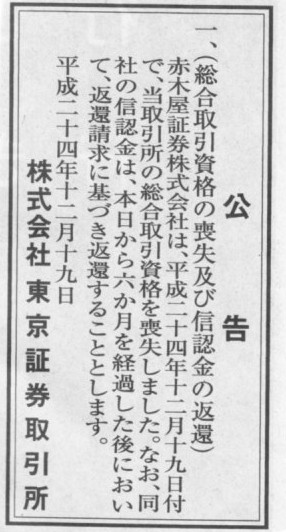 公告
一、(総合取引資格の喪失及び信認金の返還)
赤木屋証券株式会社は、平成二十四年十二月十九日付
で、当取引所の総合取引資格を喪失しました。なお、同
社の信認金は、本日から六か月を経過した後におい
て、返還請求に基づき返還することとします。
平成二十四年十二月十九日
株式会社 東京証券取引所